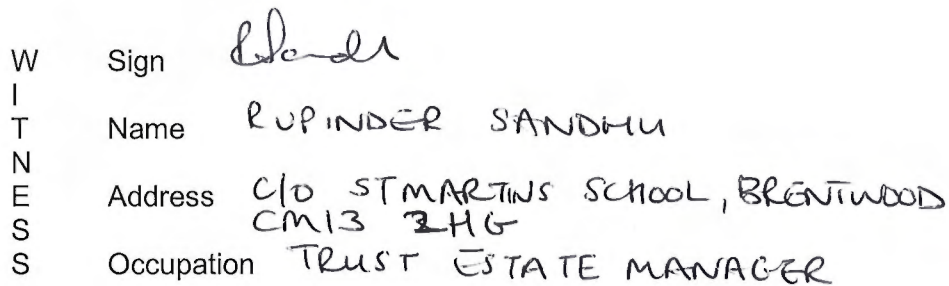 WITNESS
Sign
Name RUPINDER SANDHU
Address C/O ST MARTINS SCHOOL, BRENTWOOD
CM13 2HG
Occupation TRUST ESTATE MANAGER